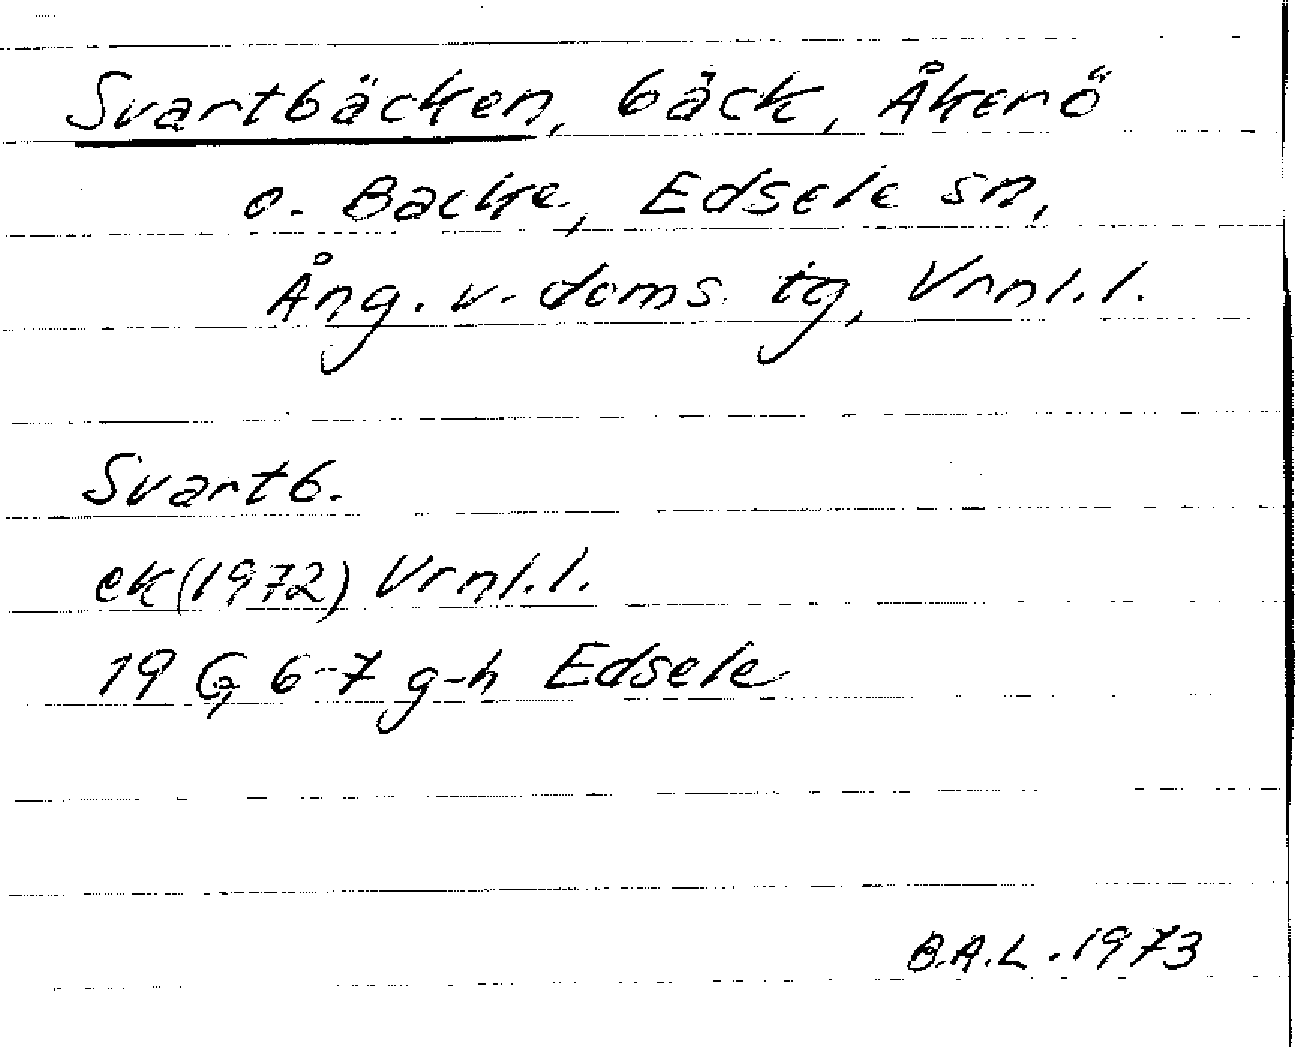 Svartbäcken, bäck, Åkerö
o. Backe, Edsele sn,
Ång. v. doms. tg, Vrnl.l.
Svartb.
ek (1972) Vrnl.l.
19 G, 6-7 g-h Edsele
B.A.L. 1973